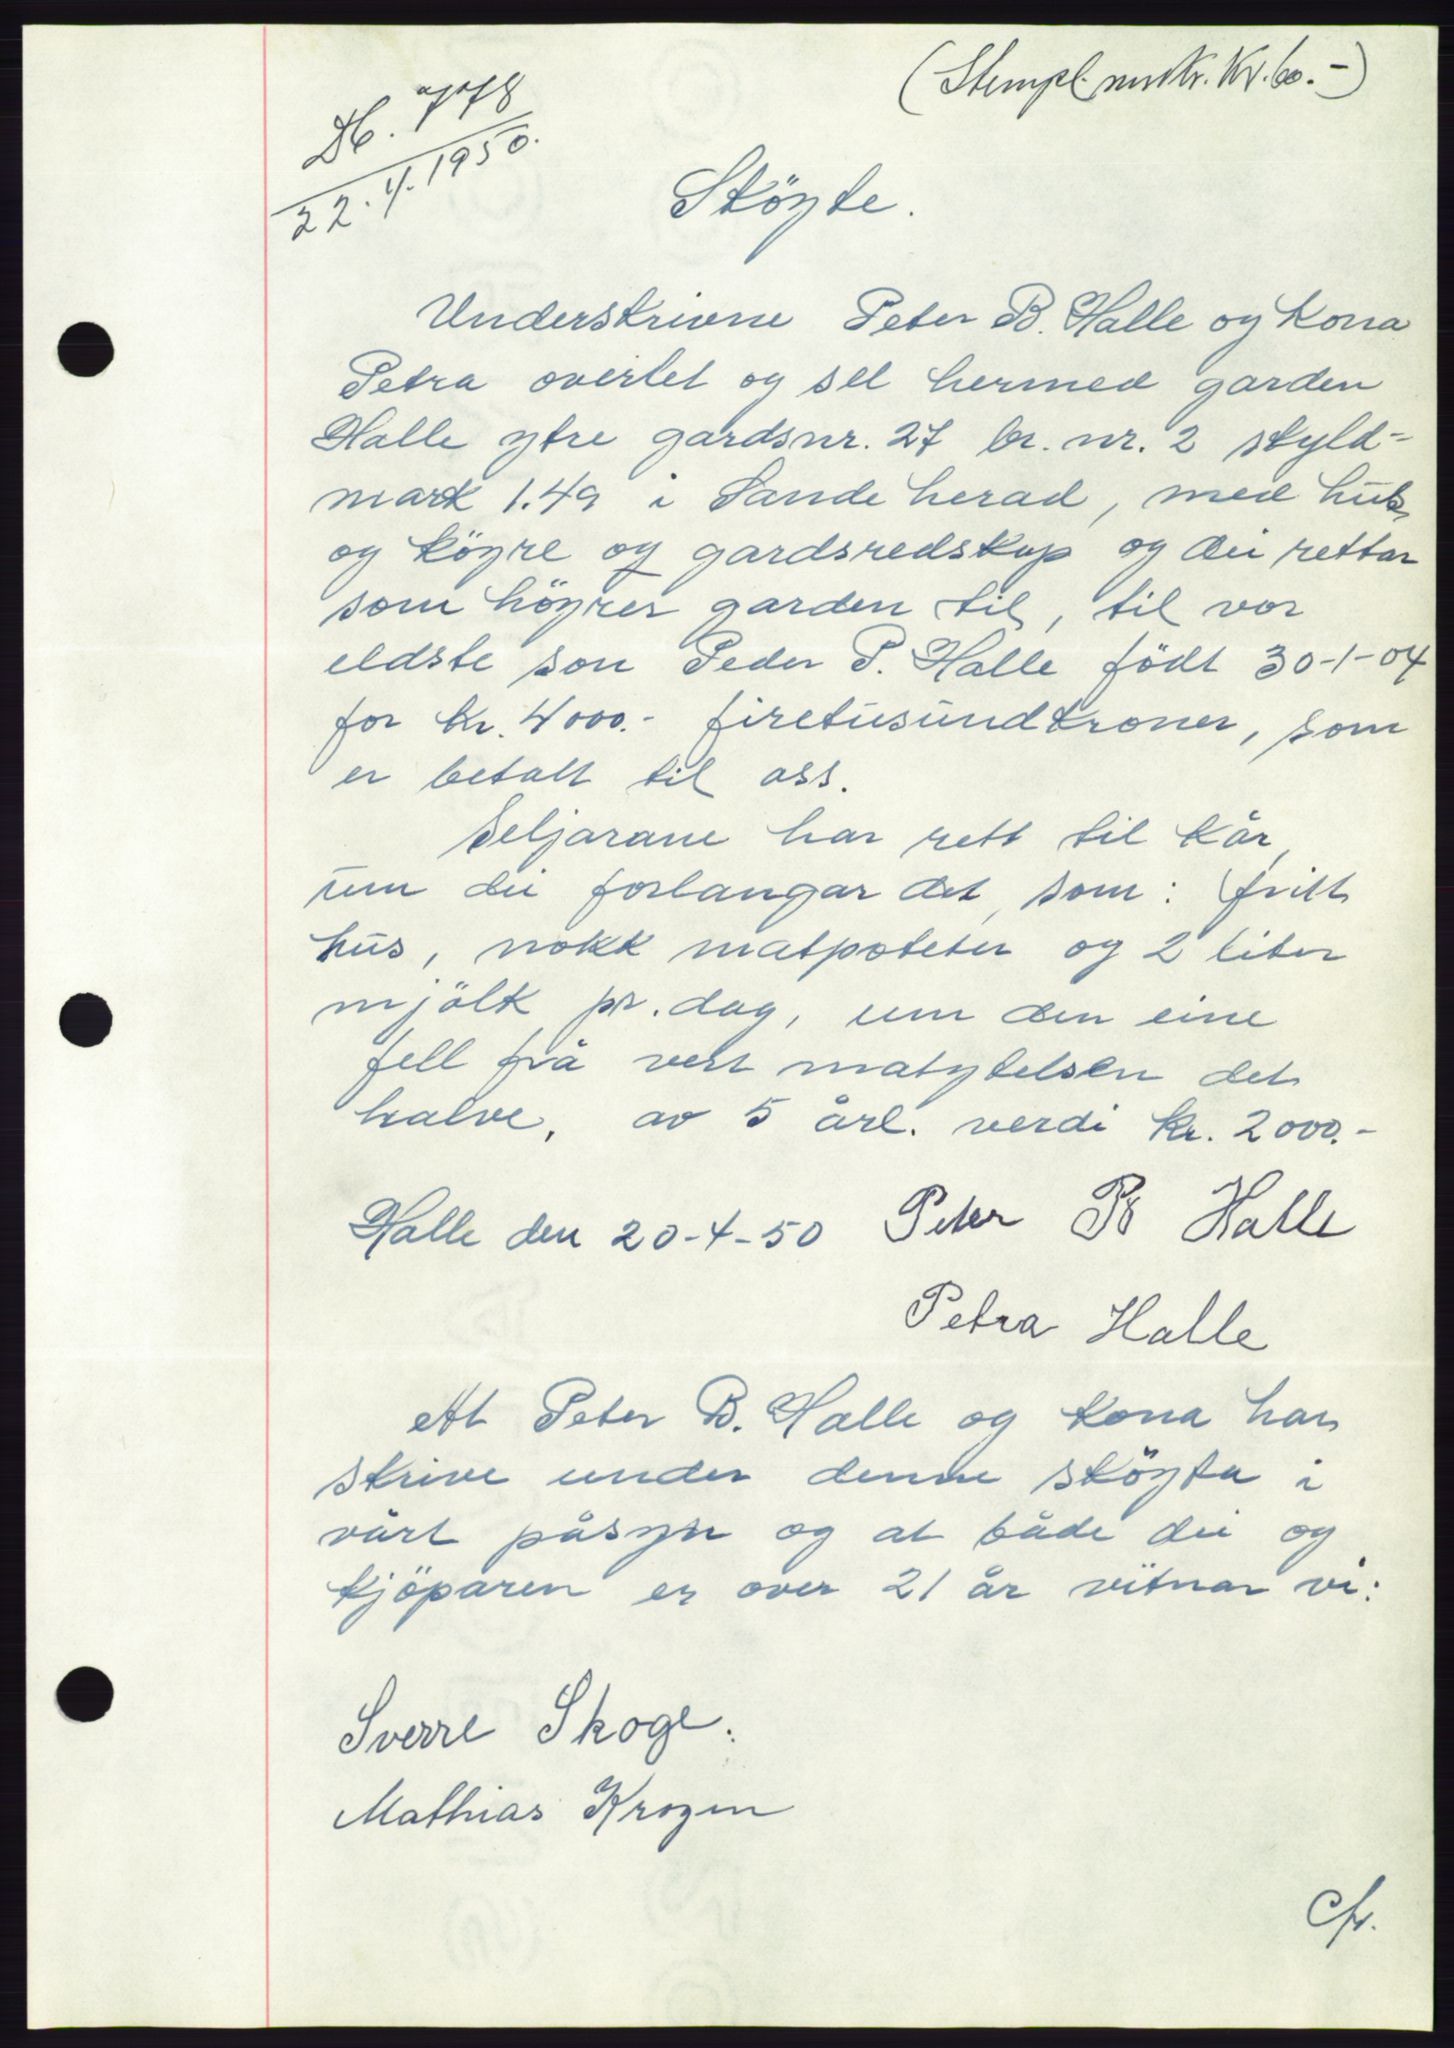 (Stempl. mrk. Kr. 60.-)
Db. 778
22.4.1950.
Sköyte.
Underskrivne Peter B. Halle og kona
Petra overlet og sel hermed garden
Halle ytre gardsnr. 27 br. nr. 2 skyld-
mark 1.49 i Sande herad, med hus
og köyre og gardsredskap og dei rettar
som höyrer garden til, til vor
eldste son Peder P. Halle födt 30-1-04
for kr. 4000.- firetusundkroner, som
er betalt til oss.
Seljarane har rett til kår,
um dei forlangar det, som: fritt
hus, nokk matpoteter og 2 liter
mjölk pr. dag, um den eine
fell frå vert matytelsen det
halve, av 5 årl. verdi kr. 2000.-
Halle den 20-4-50 Peter B Halle
Petra Halle
At Peter B. Halle og kona har
skrive under denne sköyta i
vårt påsyn og at både dei og
kjöparen er over 21 år vitnar vi:
Sverre Skoge.
Mathias Krogen